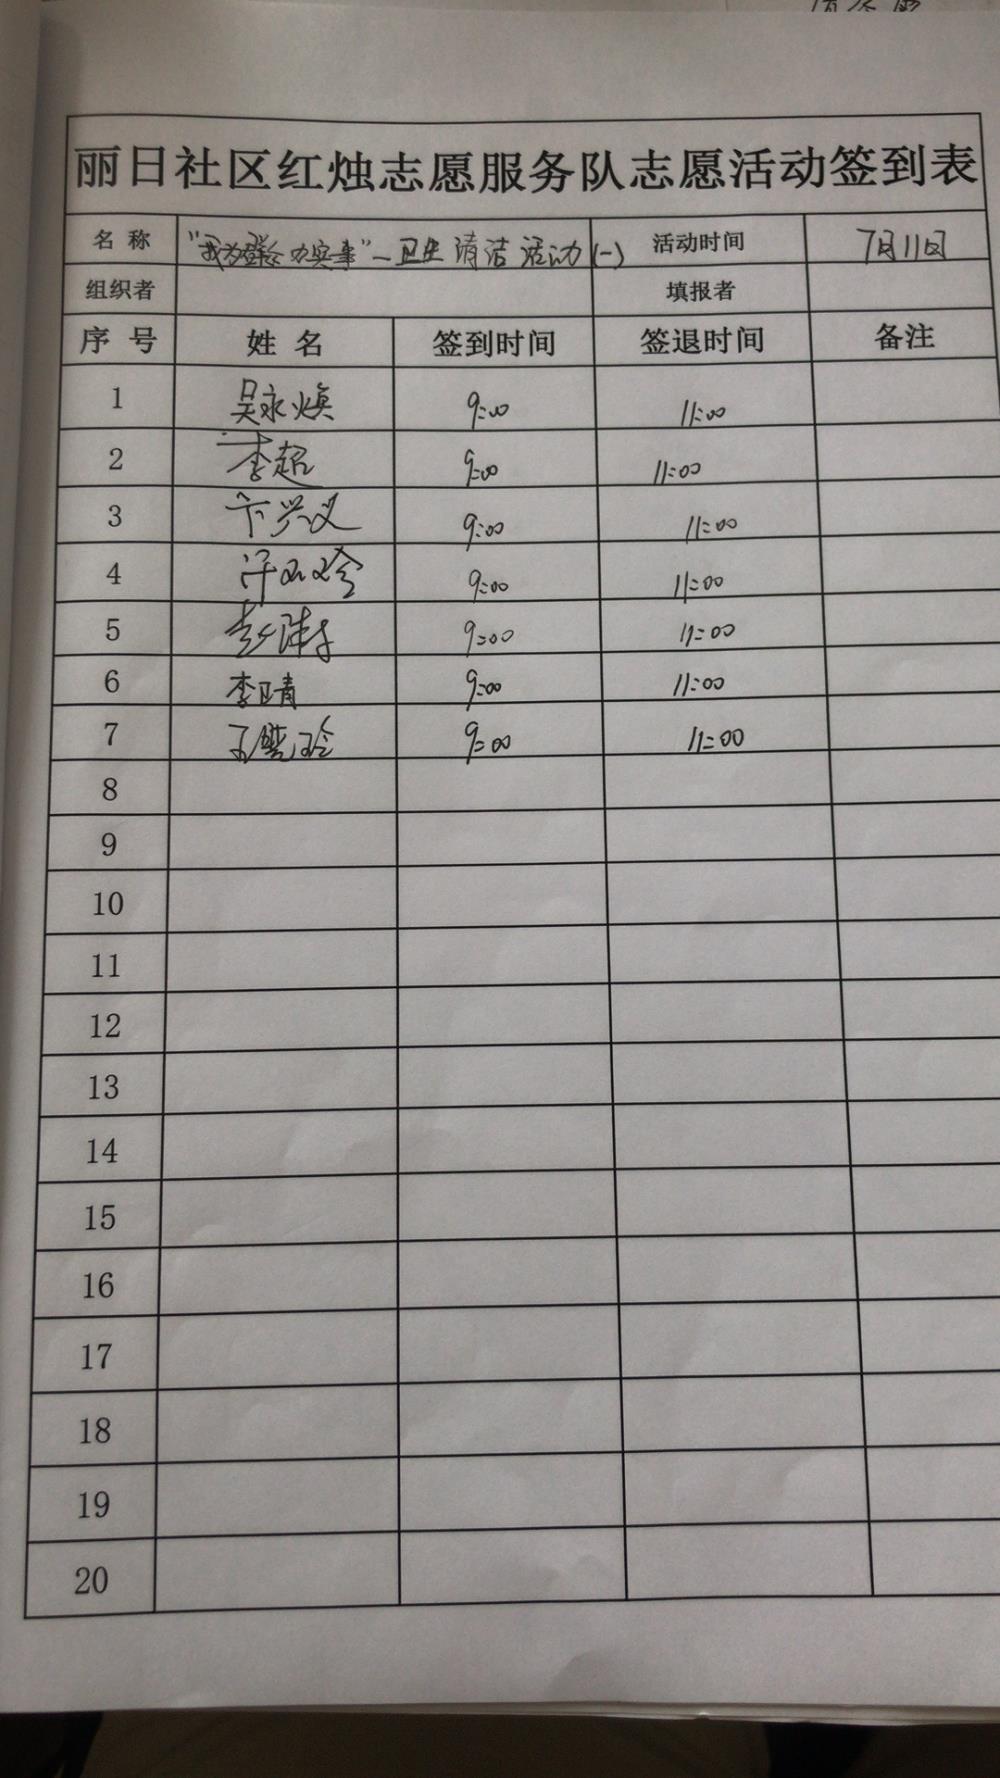 丽日社区红烛志愿服务队志愿活动签到表
名 称 "我为群众办实事"—卫生清洁活动(一) 活动时间 7月11日
组织者 填报者
序 号 姓 名 签到时间 签退时间 备注
1 吴永焕 9:00 11:00
2 李超 9:00 11:00
3 卞兴义 9:00 11:00
4 9:00 11:00
5 9:00 11:00
6 李正青 9:00 11:00
7 9:00 11:00
8
9
10
11
12
13
14
15
16
17
18
19
20